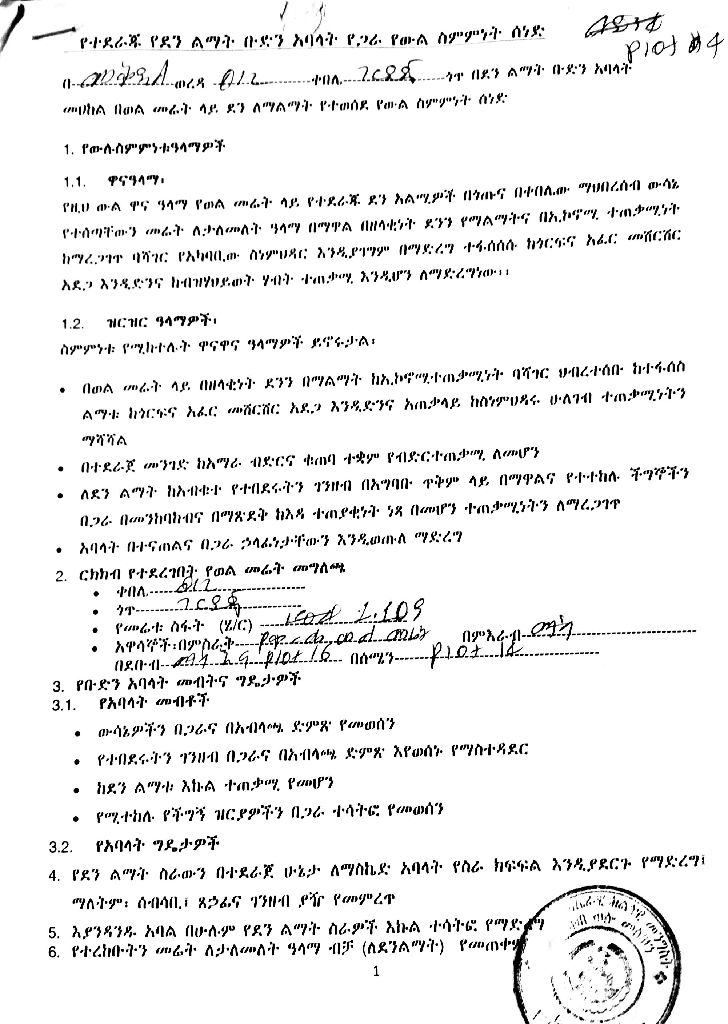 የተደራጁ የደን ልማት ቡድን አባላት የጋራ የውል ስምምነት ሰነድ
plot # 4
በ ወረዳ 012 ቀበሌ ጎጥ በደን ልማት ቡድን አባላት
መሀከል በወል መሬት ላይ ደን ለማልማት የተወሰደ የውል ስምምነት ሰነድ
1. የውሉስምምነቱዓላማዎች
1.1. ዋናዓላማ፡
የዚህ ውል ዋና ዓላማ የወል መሬት ላይ የተደራጁ ደን አልሚዎች በጎጡና በቀበሌው ማህበረሰብ ውሳኔ
የተሰጣቸውን መሬት ለታለመለት ዓላማ በማዋል በዘላቂነት ደንን የማልማትና በኢኮኖሚ ተጠቃሚነት
ከማረጋገጥ ባሻገር የአካባቢው ስነምህዳር እንዲያገግም በማድረግ ተፋሰሰሱ ከጎርፍና አፈር መሸርሸር
አደጋ እንዲድንና ከብዝሃህይወት ሃብት ተጠቃሚ እንዲሆን ለማድረግነው፡፡
1.2. ዝርዝር ዓላማዎች፡
ስምምነቱ የሚከተሉት ዋናዋና ዓላማዎች ይኖሩታል፡
• በወል መሬት ላይ በዘላቂነት ደንን በማልማት ከኢኮኖሚተጠቃሚነት ባሻገር ህብረተሰቡ ከተፋሰስ
ልማቱ ከጎርፍና አፈር መሸርሸር አደጋ እንዲድንና አጠቃላይ ከስነምህዳሩ ሁለገብ ተጠቃሚነትን
ማሻሻል
• በተደራጀ መንገድ ከአማራ ብድርና ቁጠባ ተቋም የብድርተጠቃሚ ለመሆን
• ለደን ልማት ከአብቁተ የተበደሩትን ገንዘብ በአግባቡ ጥቅም ላይ በማዋልና የተተከሉ ችግኞችን
በጋራ በመንከባከብና በማጽደቅ ከእዳ ተጠያቂነት ነጻ በመሆን ተጠቃሚነትን ለማረጋገጥ
• አባላት በተናጠልና በጋራ ኃላፊነታቸውን እንዲወጡለ ማድረግ
2. ርክክብ የተደረገበት የወል መሬት መግለጫ
• ቀበሌ 012
• ጎጥ
• የመሬቱ ስፋት (ሄ/ር) 1.109
• አዋሳኞች፡በምስራት በምእራብ
በደቡብ plot 16 በሰሜን plot 12
3. የቡድን አባላት መብትና ግዴታዎች
3.1. የአባላት መብቶች
• ውሳኔዎችን በጋራና በአብላጫ ድምጽ የመወሰን
• የተበደሩትን ገንዘብ በጋራና በአብላጫ ድምጽ እየወሰኑ የማስተዳደር
• ከደን ልማቱ እኩል ተጠቃሚ የመሆን
• የሚተከሉ የችግኝ ዝርያዎችን በጋራ ተሳትፎ የመወሰን
3.2. የአባላት ግዴታዎች
4. የደን ልማት ስራውን በተደራጀ ሁኔታ ለማስኬድ አባላት የስራ ክፍፍል እንዲያደርጉ የማድረግ፤
ማለትም፡ ሰብሳቢ፤ ጸኃፊና ገንዘብ ያዥ የመምረጥ
5. እያንዳንዱ አባል በሁሉም የደን ልማት ስራዎች እኩል ተሳትፎ የማድረግ
6. የተረከቡትን መሬት ለታለመለት ዓላማ ብቻ (ለደንልማት) የመጠቀም
1